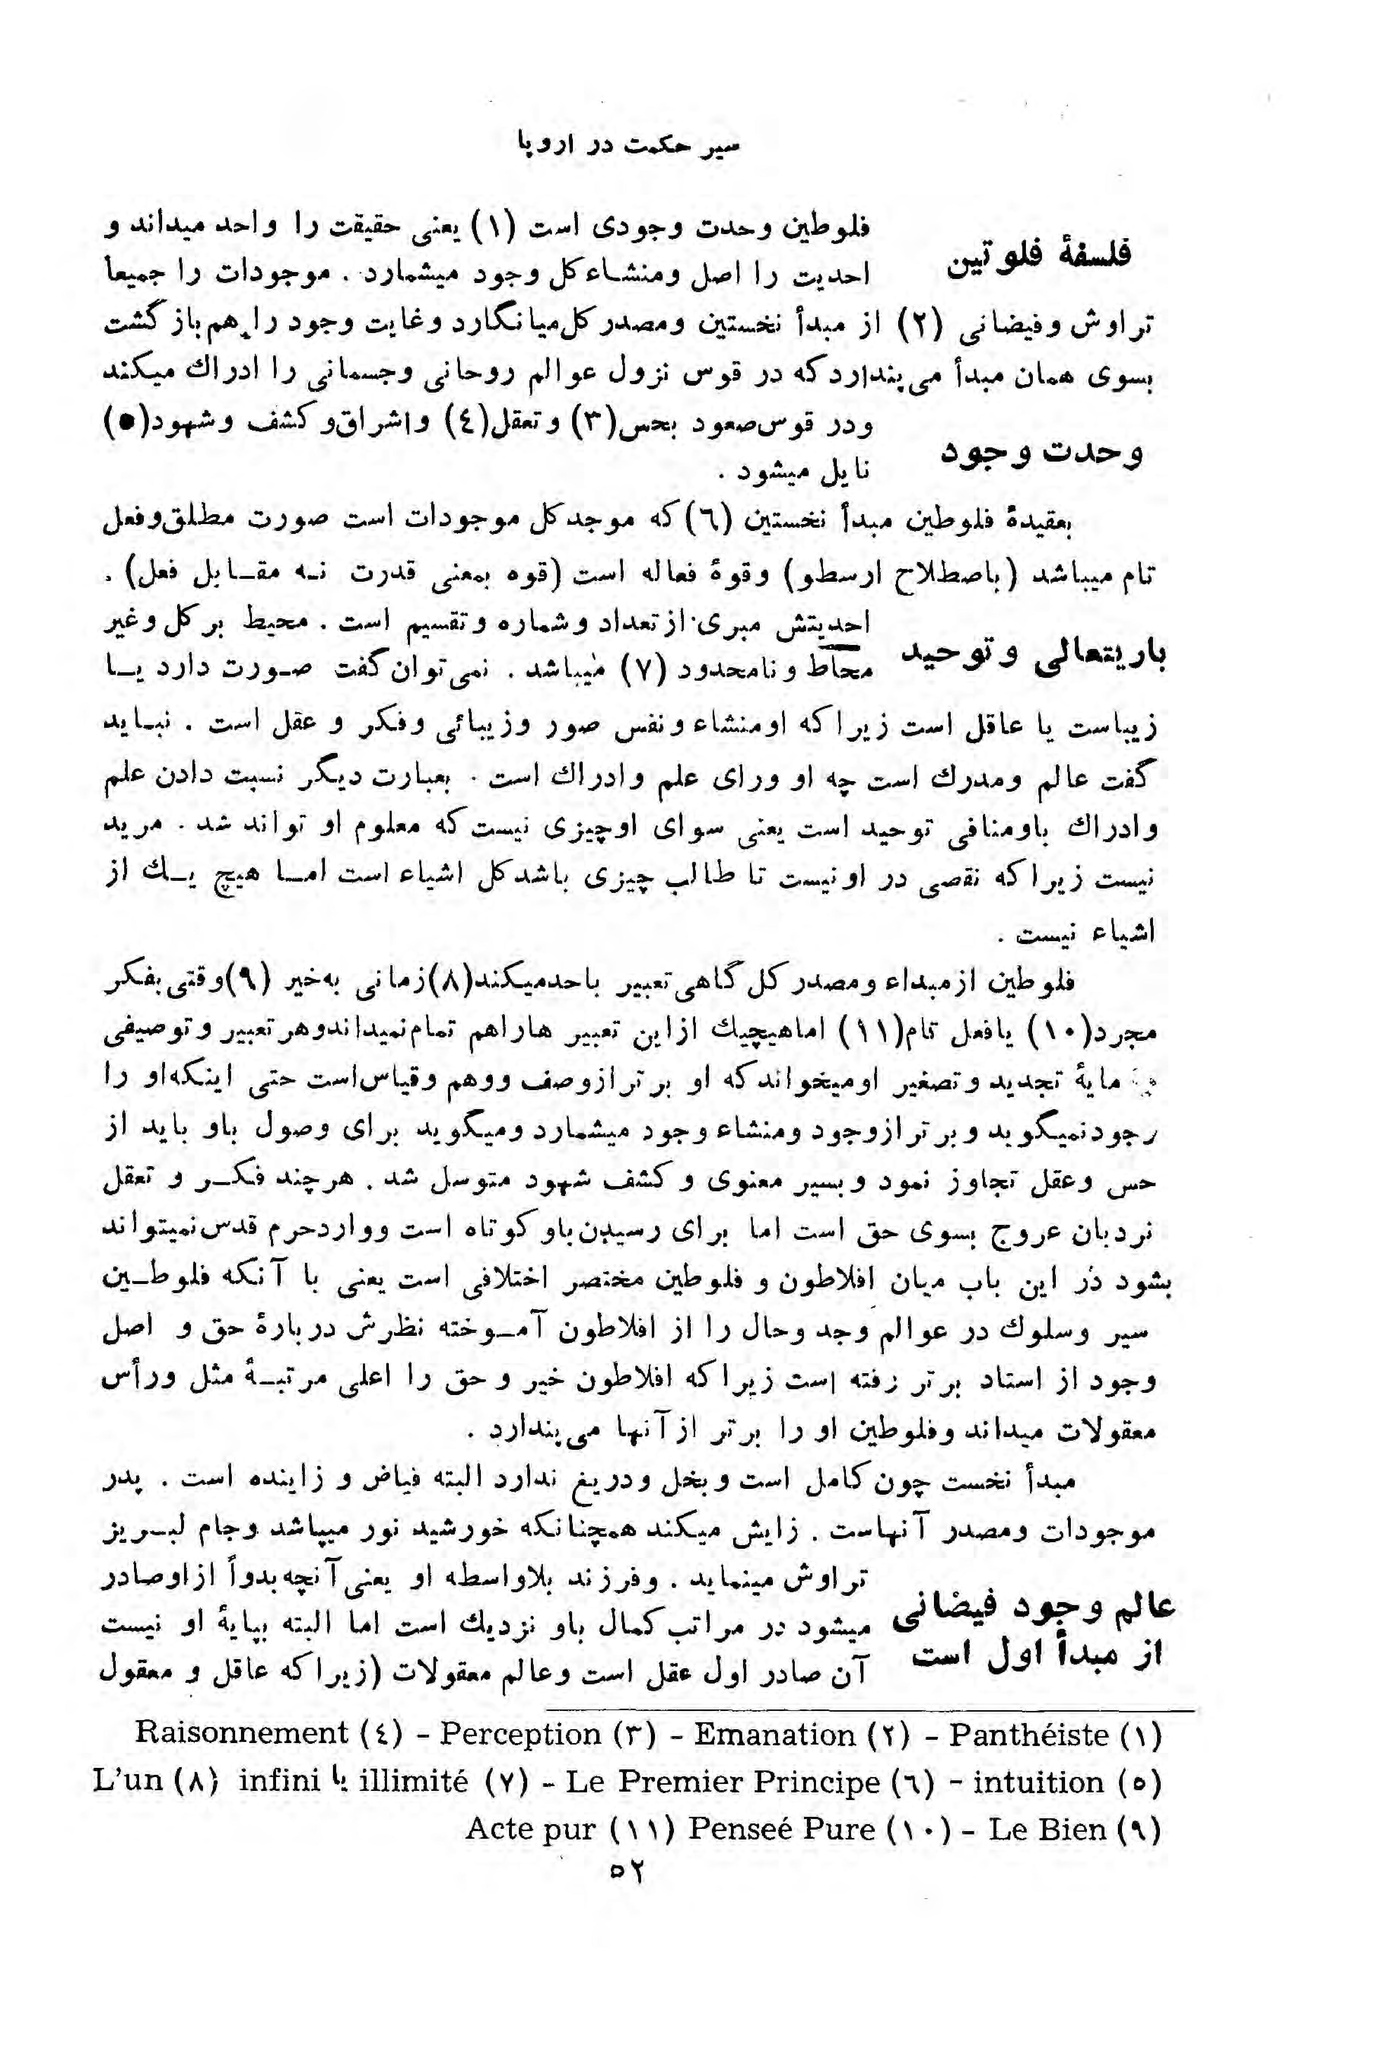 سیر حکمت در اروپا
فلسفهٔ فلوتین
فلوطین وحدت وجودی است (۱) یعنی حقیقت را واحد میداند و
احدیت را اصل ومنشاء کل وجود میشمارد . موجودات را جمیعاً
تراوش وفیضانی (۲) از مبدأ نخستین ومصدر کل میانگارد وغایت وجود را هم بازگشت
بسوی همان مبدأ می‌پندارد که در قوس نزول عوالم روحانی وجسمانی را ادراك میکند
وحدت وجود
ودر قوس صعود بحس(۳) وتعقل(٤) واشراق و کشف وشهود(٥)
نایل میشود .
بعقیدهٔ فلوطین مبدأ نخستین (٦) که موجد کل موجودات است صورت مطلق وفعل
تام میباشد (باصطلاح ارسطو) وقوهٔ فعاله است (قوه بمعنی قدرت نه مقابل فعل) .
باریتعالی و توحید
احدیتش مبری از تعداد وشماره وتقسیم است . محیط بر کل وغیر
محاط ونامحدود (۷) میباشد . نمی‌توان گفت صورت دارد یا
زیباست یا عاقل است زیرا که اومنشاء ونفس صور وزیبائی وفکر و عقل است . نباید
گفت عالم ومدرك است چه او ورای علم وادراك است . بعبارت دیگر نسبت دادن علم
وادراك باومنافی توحید است یعنی سوای اوچیزی نیست که معلوم او تواند شد . مرید
نیست زیرا که نقصی در اونیست تا طالب چیزی باشد کل اشیاء است اما هیچ یك از
اشیاء نیست .
فلوطین از مبداء ومصدر کل گاهی تعبیر باحد میکند(۸) زمانی به خیر (۹) وقتی بفکر
مجرد(۱۰) یا فعل تام(۱۱) اماهیچیك ازاین تعبیر هاراهم تمام نمیداندوهر تعبیر وتوصیفی
مایهٔ تجدید وتصغیر اومیخواند که او برتر ازوصف ووهم وقیاس است حتی اینکه او را
وجود نمیگوید وبرتر ازوجود ومنشاء وجود میشمارد ومیگوید برای وصول باو باید از
حس وعقل تجاوز نمود وبسیر معنوی و کشف شهود متوسل شد . هرچند فکر و تعقل
نردبان عروج بسوی حق است اما برای رسیدن باو کوتاه است وواردحرم قدس نمیتواند
بشود در این باب میان افلاطون و فلوطین مختصر اختلافی است یعنی با آنکه فلوطین
سیر وسلوك در عوالم وجد وحال را از افلاطون آموخته نظرش دربارهٔ حق و اصل
وجود از استاد برتر رفته است زیرا که افلاطون خیر و حق را اعلی مرتبهٔ مثل ورأس
معقولات میداند وفلوطین او را برتر از آنها می‌پندارد .
مبدأ نخست چون کامل است وبخل ودریغ ندارد البته فیاض و زاینده است . پدر
موجودات ومصدر آنهاست . زایش میکند همچنانکه خورشید نور میپاشد وجام لبریز
عالم وجود فیضانی
از مبدأ اول است
تراوش مینماید . وفرزند بلاواسطه او یعنی آنچه بدواً ازاوصادر
میشود در مراتب کمال باو نزدیك است اما البته بپایهٔ او نیست
آن صادر اول عقل است وعالم معقولات (زیرا که عاقل و معقول
(۱) Panthéiste - (۲) Emanation - (۳) Perception - (٤) Raisonnement
(٥) intuition - (٦) Le Premier Principe - (۷) illimité یا infini (۸) L'un
(۹) Le Bien - (۱۰) Penseé Pure (۱۱) Acte pur
٥۲